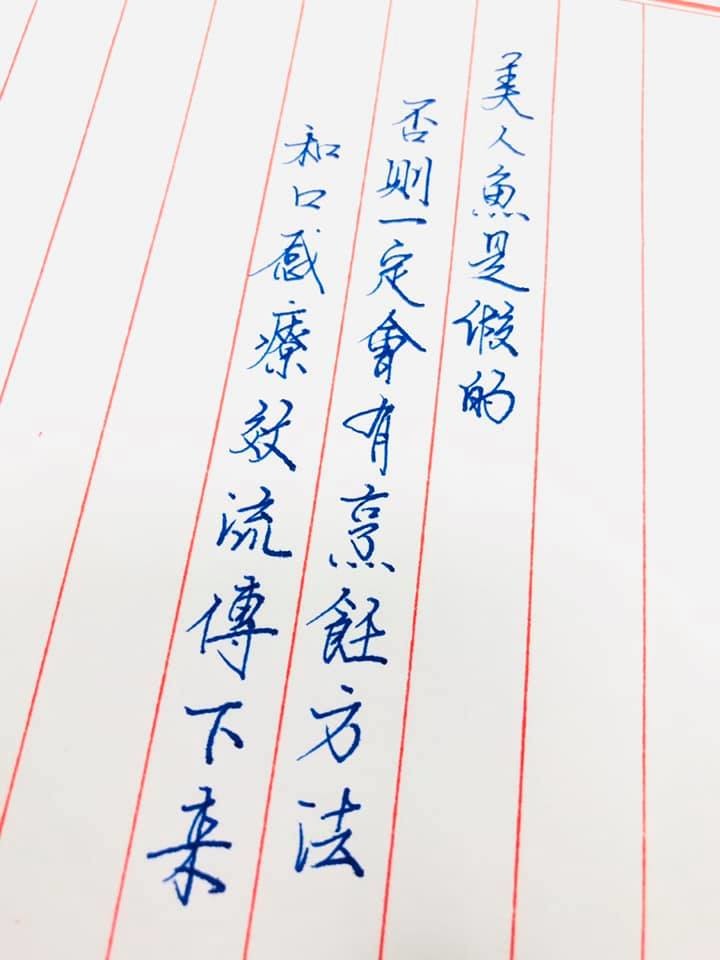 美人魚是假的
否則一定會有烹飪方法
和口感療效流傳下來